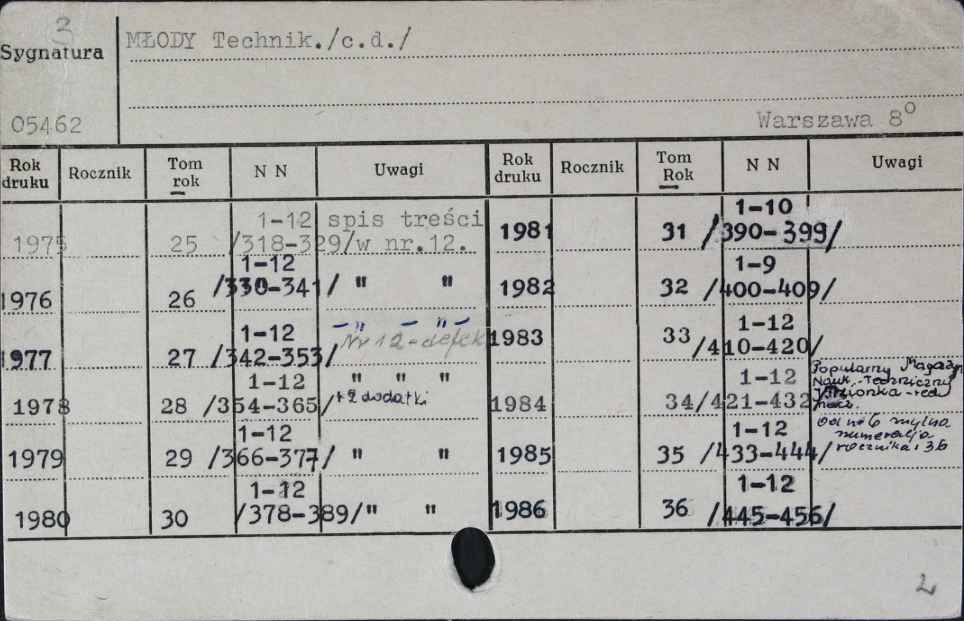 3
Sygnatura
MŁODY Technik./c.d./
05462
Warszawa 8°
Rok druku Rocznik Tom rok N N Uwagi Rok druku Rocznik Tom Rok N N Uwagi
1-12 spis treści
1975 25 /318-329/w nr.12.
1-10
1981 31 /390-399/
1-12
1976 26 /330-341/ " "
1-9
1982 32 /400-409/
1-12 " "
1977 27 /342-353/ Nr 12-defekt
1-12
1983 33 /410-420/
1-12 " " "
1978 28 /354-365/ +2 dodatki
1-12
1984 34/421-432/
Popularny Magazyn
Nauk.-Techniczny
1-12
1979 29 /366-377/ " "
1-12
1985 35 /433-444/
Od nr 6 mylna
numeracja
rocznika: 36
1-12
1980 30 /378-389/" "
1-12
1986 36 /445-456/
2